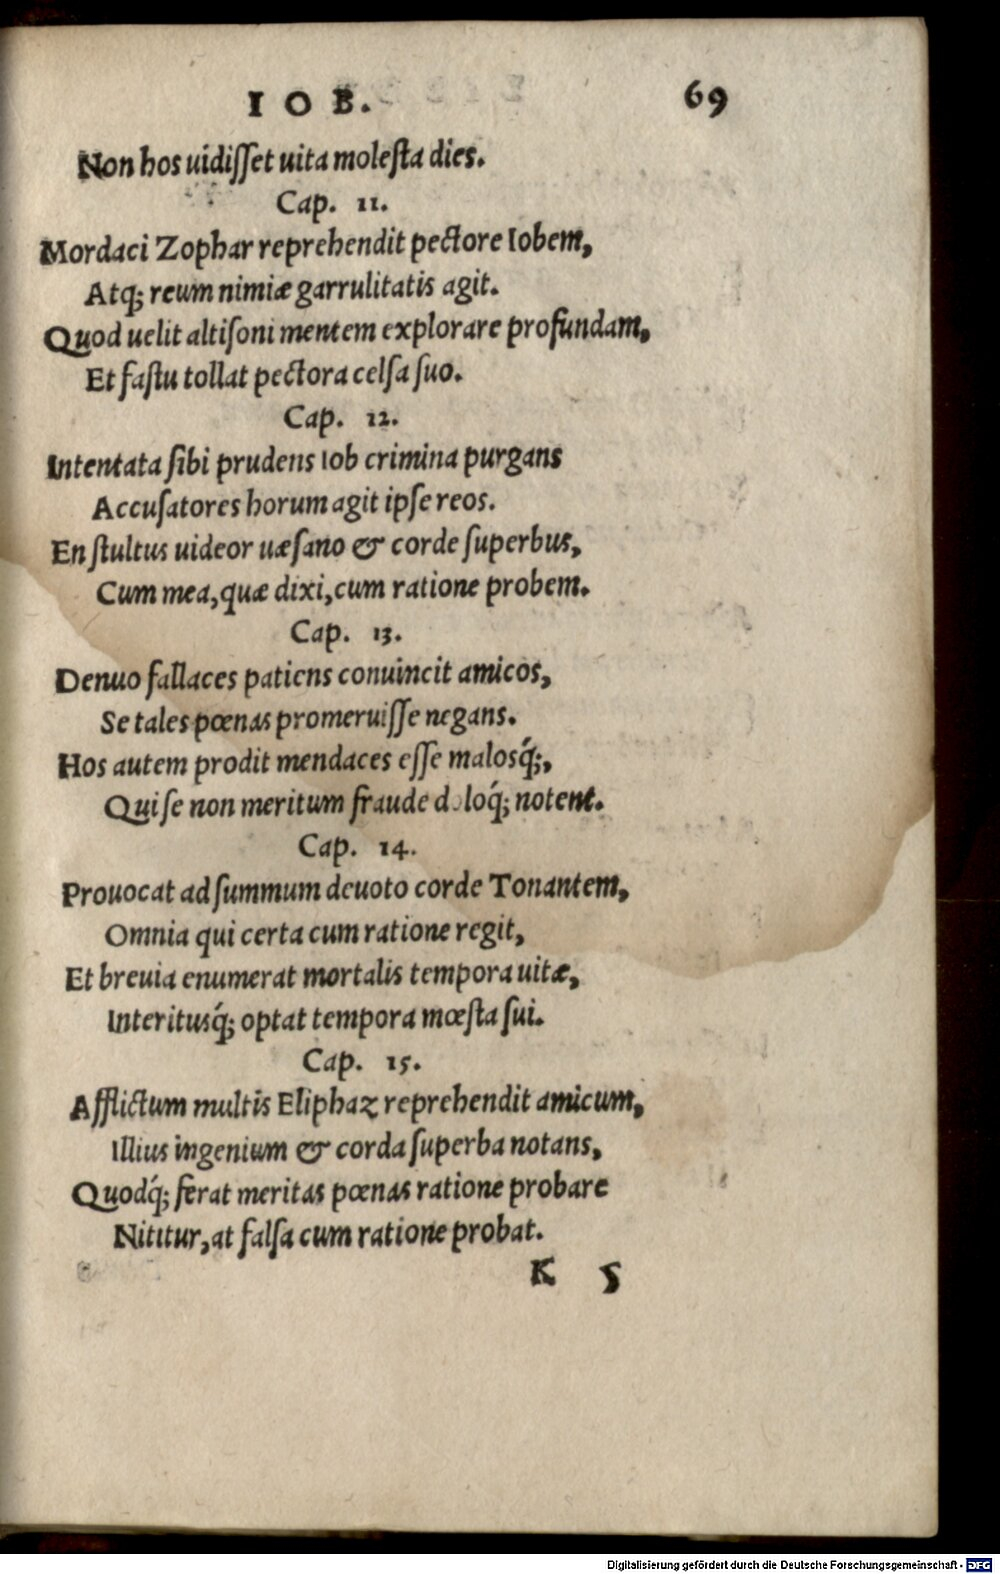 IOB. 69
Non hos uidiſſet uita moleſta dies.
Cap. 11.
Mordaci Zophar reprehendit pectore Iobem,
Atq; reum nimiæ garrulitatis agit.
Quod uelit altiſoni mentem explorare profundam,
Et faſtu tollat pectora celſa ſuo.
Cap. 12.
Intentata ſibi prudens Iob crimina purgans
Accuſatores horum agit ipſe reos.
En ſtultus uideor uæſano & corde ſuperbus,
Cum mea, quæ dixi, cum ratione probem.
Cap. 13.
Denuo fallaces patiens conuincit amicos,
Se tales pœnas promeruiſſe negans.
Hos autem prodit mendaces eſſe malosq́;,
Qui ſe non meritum fraude doloq́; notent.
Cap. 14.
Prouocat ad ſummum deuoto corde Tonantem,
Omnia qui certa cum ratione regit,
Et breuia enumerat mortalis tempora uitæ,
Interitusq́; optat tempora mœſta ſui.
Cap. 15.
Afflictum multis Eliphaz reprehendit amicum,
Illius ingenium & corda ſuperba notans,
Quodq́; ferat meritas pœnas ratione probare
Nititur, at falſa cum ratione probat.
K 5
Digitalisierung gefördert durch die Deutsche Forschungsgemeinschaft - DFG